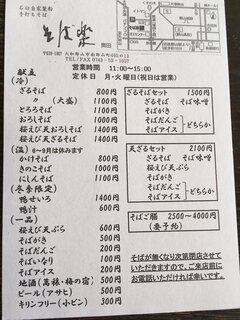 石臼自家製粉
手打ちそば
そば楽
岡田
TEL/FAX 0743-53-1057
営業時間 11:00〜15:00
定休日 月・火曜日(祝日は営業)
献立
(冷)
ざるそば 800円
〃 (大盛) 1100円
とろろそば 1100円
おろしそば 1000円
桜えび天おろしそば 1400円
桜えび天ざるそば 1400円
(温) 6〜9月は休みます
かけそば 800円
きのこそば 1100円
にしんそば 1100円
(冬季限定)
鴨せいろ 1400円
鴨汁 600円
(一品)
桜えび天ぷら 600円
そばがき 500円
そばだんご 200円
そばいなり 100円
そばアイス 200円
地酒(萬穣・梅の宿) 500円
ビール(アサヒ) 300円
キリンフリー(小ビン) 300円
ざるそばセット 1500円
ざるそば そば味噌
そばがき
そばだんご
そばアイス
どちらか
天ざるセット 2100円
ざるそば そば味噌
桜えび天ぷら
そばがき
そばだんご
そばアイス
どちらか
そばご膳 2500〜4000円
(要予約)
そばが無くなり次第閉店させて
いただきますので、ご来店前に
お電話いただければ幸いです。